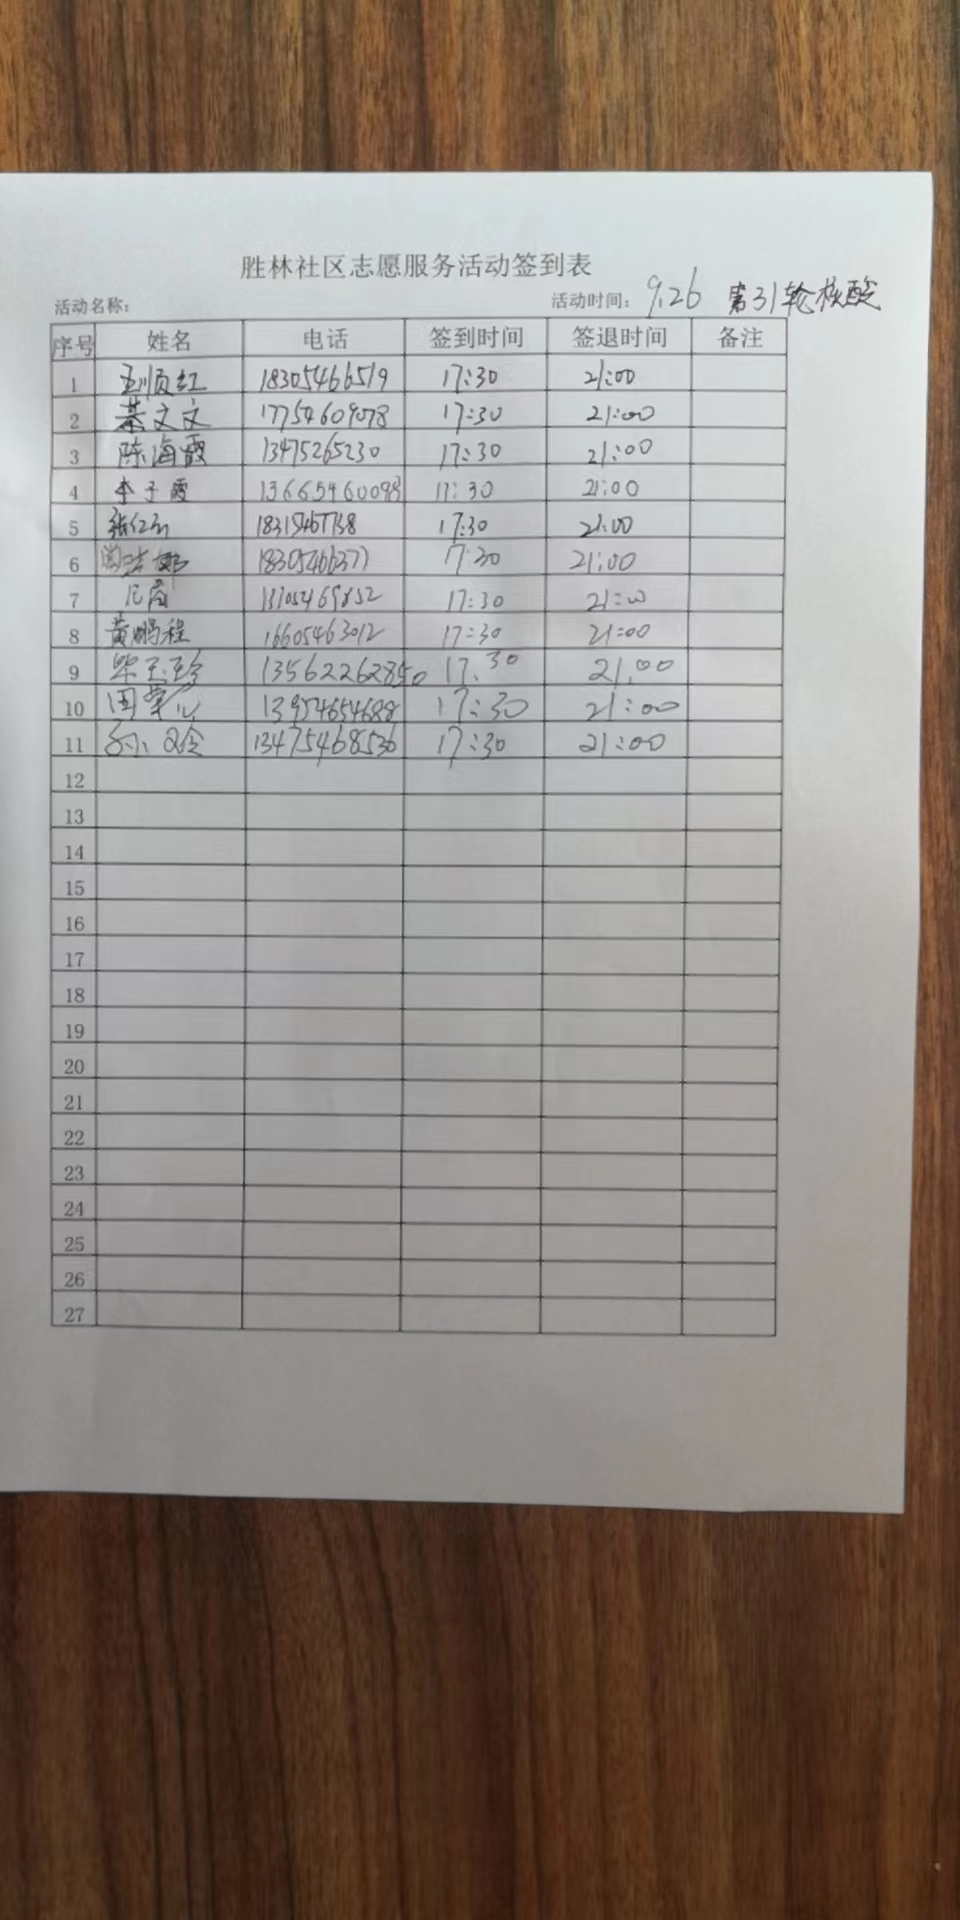 胜林社区志愿服务活动签到表
活动名称: 活动时间: 9.26 第31轮核酸
序号 姓名 电话 签到时间 签退时间 备注
1 王顺红 18305466519 17:30 21:00
2 綦文文 17754609078 17:30 21:00
3 陈海霞 13475265230 17:30 21:00
4 李子霞 13665460098 17:30 21:00
5 17:30 21:00
6 17:30 21:00
7 17:30 21:00
8 黄鹏程 16605463012 17:30 21:00
9 毕玉珍 13562262850 17:30 21:00
10 13954654688 17:30 21:00
11 13475468536 17:30 21:00
12
13
14
15
16
17
18
19
20
21
22
23
24
25
26
27